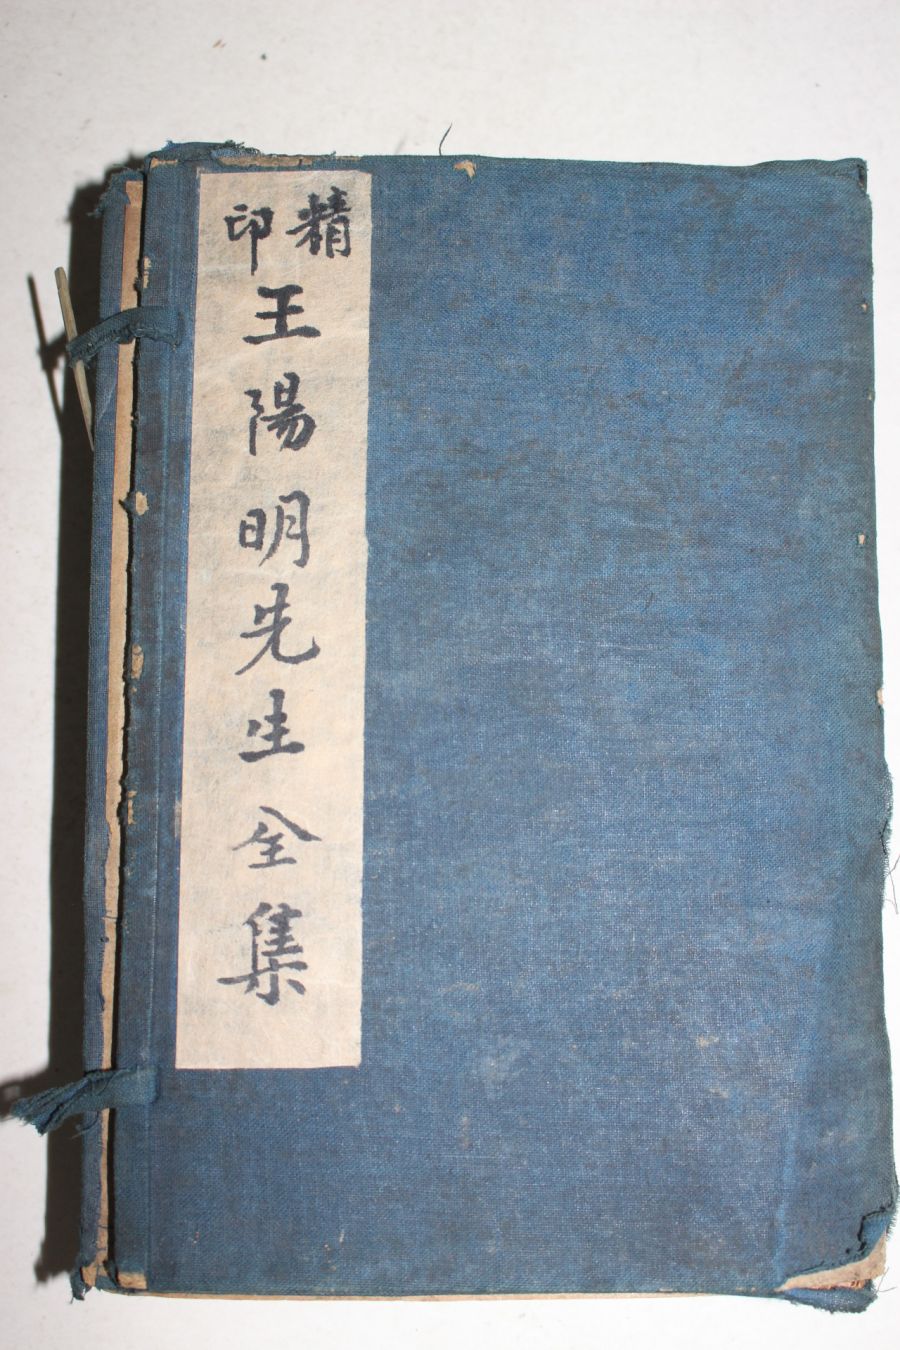 精印
王陽明先生全集